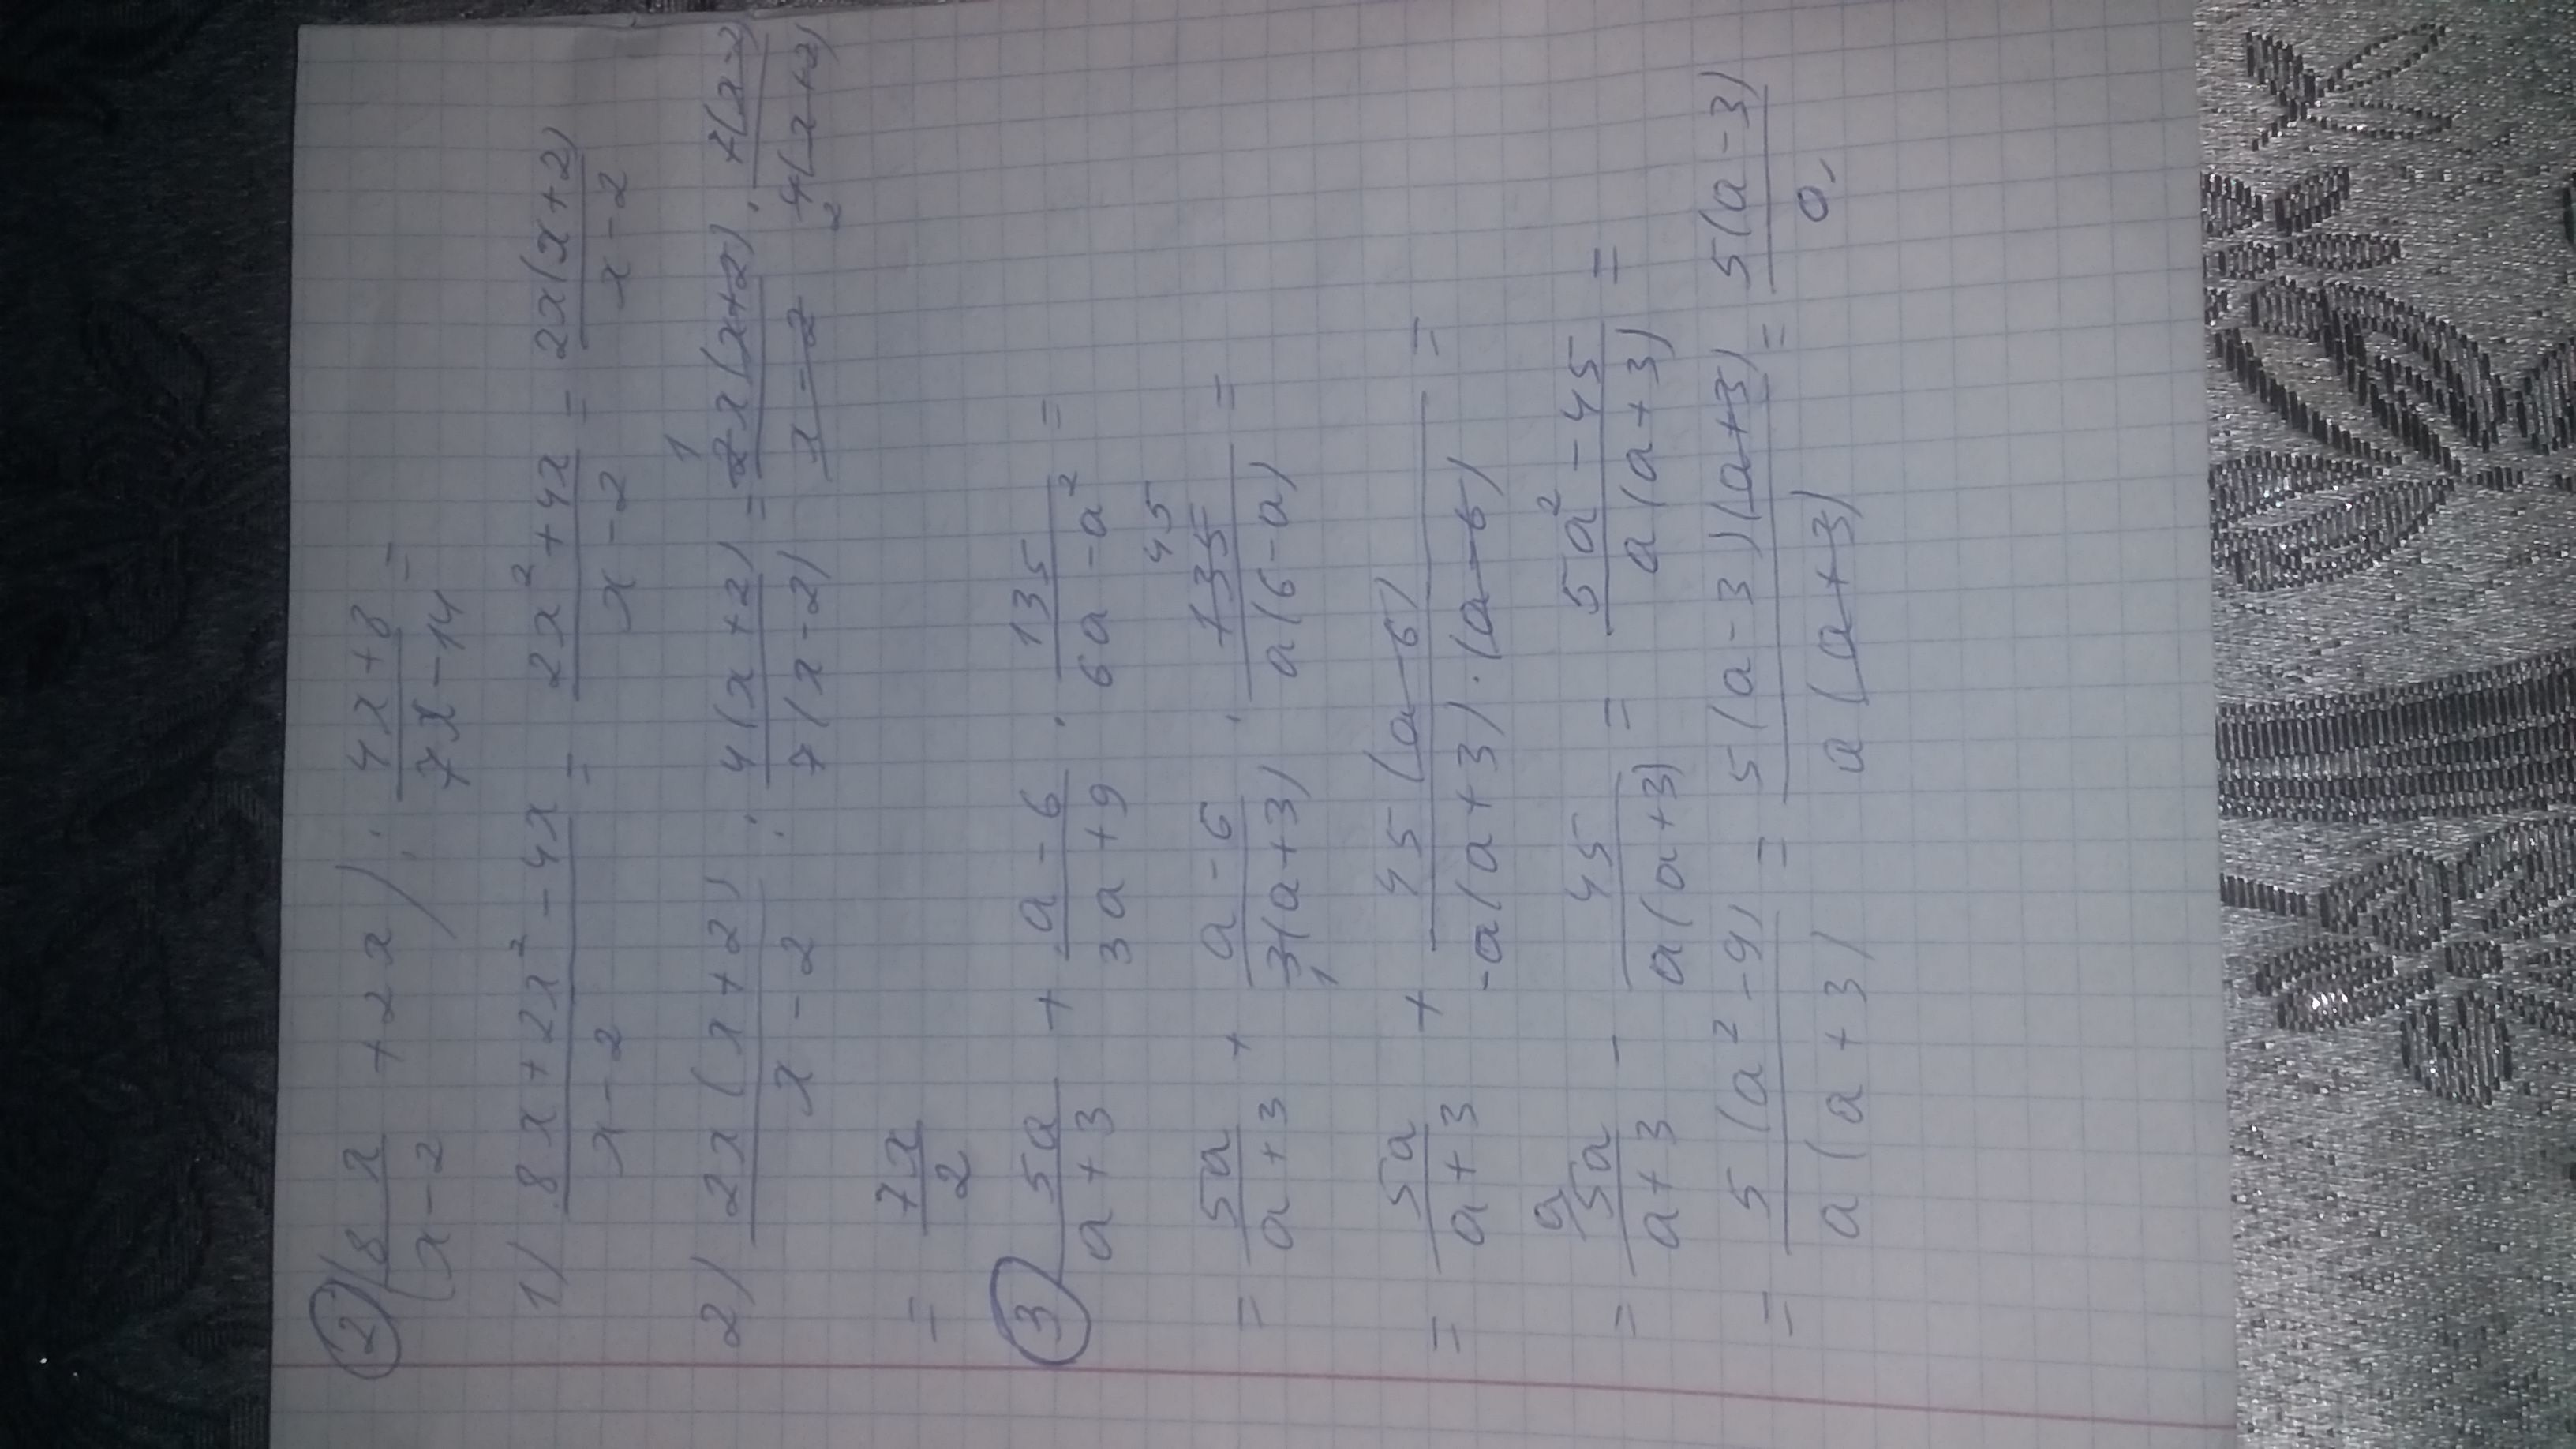 ② (8x/(x-2) + 2x) : (4x+8)/(7x-14) =
1) (8x+2x²-4x)/(x-2) = (2x²+4x)/(x-2) = 2x(x+2)/(x-2)
2) 2x(x+2)/(x-2) : 4(x+2)/7(x-2) = 2x(x+2)/(x-2) · 7(x-2)/4(x+2)
= 7x/2
③ 5a/(a+3) + (a-6)/(3a+9) · 135/(6a-a²) =
= 5a/(a+3) + (a-6)/3(a+3) · 135/a(6-a) =
= 5a/(a+3) + 45(a-6)/-a(a+3)·(a-6) =
= 5a/(a+3) - 45/a(a+3) = (5a²-45)/a(a+3) =
= 5(a²-9)/a(a+3) = 5(a-3)(a+3)/a(a+3) = 5(a-3)/a